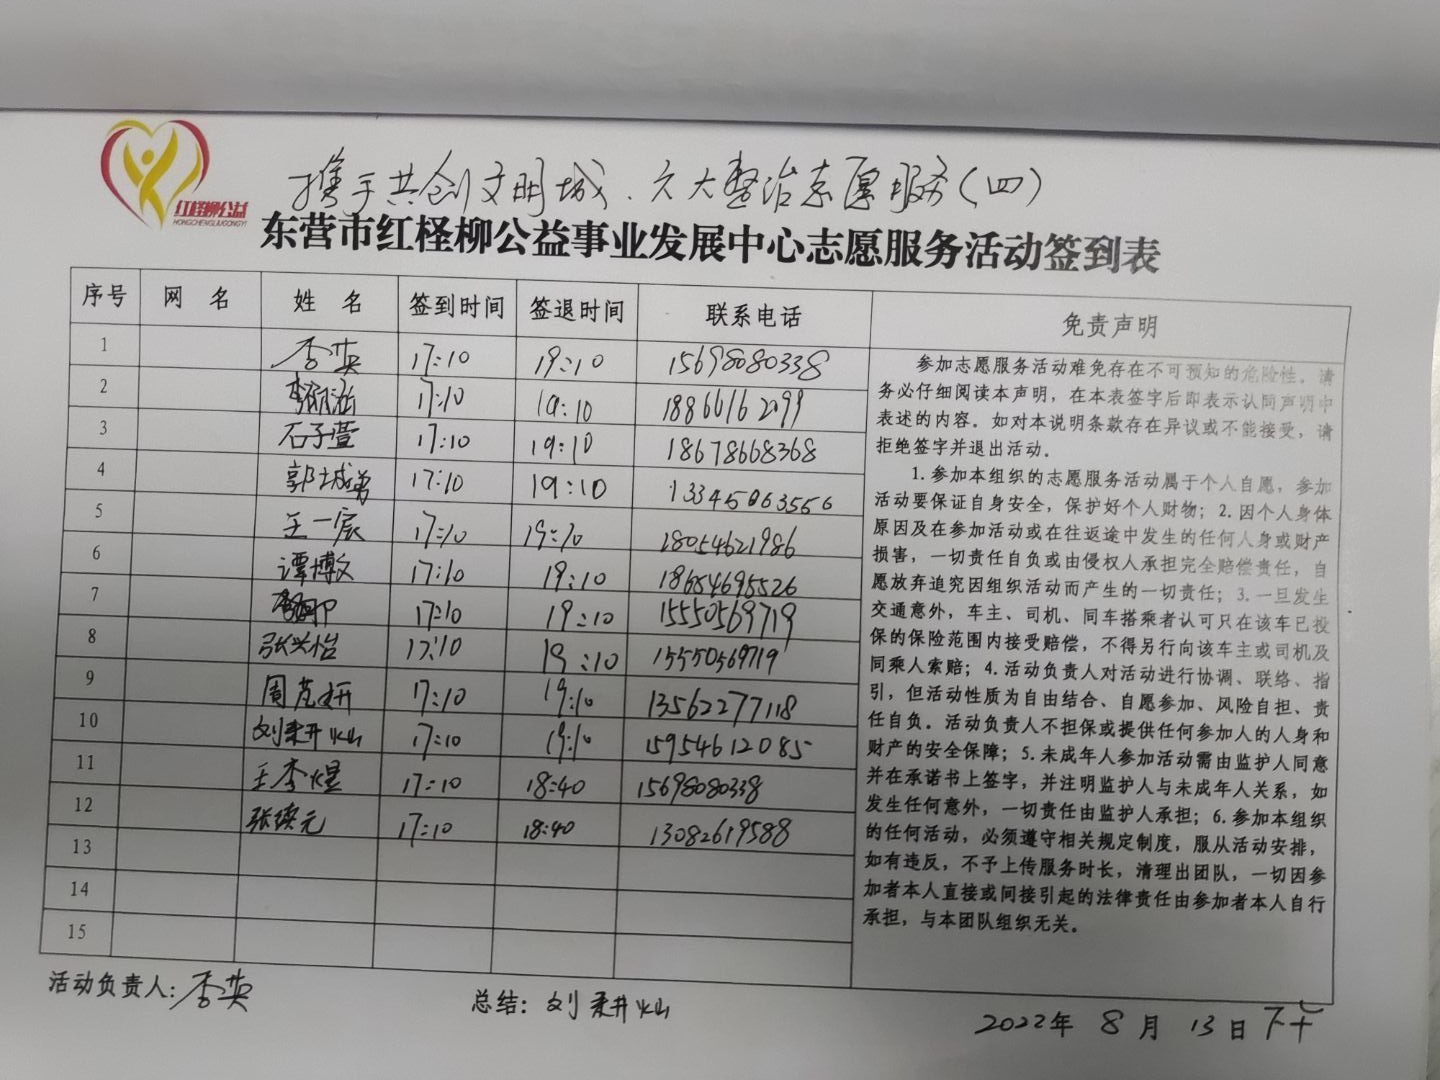 携手共创文明城、六大整治志愿服务(四)
红柽柳公益
HONGCHENGLIUGONGYI
东营市红柽柳公益事业发展中心志愿服务活动签到表
序号 网 名 姓 名 签到时间 签退时间 联系电话 免责声明
1 李英 17:10 19:10 15698080338
2 17:10 19:10 18866162099
3 石子萱 17:10 19:10 18678668368
4 郭城 17:10 19:10 13345063556
5 王一宸 17:10 19:10 18054621986
6 谭博文 17:10 19:10 18654695526
7 17:10 19:10 15550569719
8 张兴怡 17:10 19:10 15550569719
9 周芃妍 17:10 19:10 13562277118
10 刘耔灿 17:10 19:10 15954612085
11 王李煜 17:10 18:40 15698080338
12 张续元 17:10 18:40 13082619588
13
14
15
参加志愿服务活动难免存在不可预知的危险性。请
务必仔细阅读本声明，在本表签字后即表示认同声明中
表述的内容。如对本说明条款存在异议或不能接受，请
拒绝签字并退出活动。
1.参加本组织的志愿服务活动属于个人自愿，参加
活动要保证自身安全，保护好个人财物；2.因个人身体
原因及在参加活动或在往返途中发生的任何人身或财产
损害，一切责任自负或由侵权人承担完全赔偿责任，自
愿放弃追究因组织活动而产生的一切责任；3.一旦发生
交通意外，车主、司机、同车搭乘者认可只在该车已投
保的保险范围内接受赔偿，不得另行向该车主或司机及
同乘人索赔；4.活动负责人对活动进行协调、联络、指
引，但活动性质为自由结合、自愿参加、风险自担、责
任自负。活动负责人不担保或提供任何参加人的人身和
财产的安全保障；5.未成年人参加活动需由监护人同意
并在承诺书上签字，并注明监护人与未成年人关系，如
发生任何意外，一切责任由监护人承担；6.参加本组织
的任何活动，必须遵守相关规定制度，服从活动安排，
如有违反，不予上传服务时长，清理出团队，一切因参
加者本人直接或间接引起的法律责任由参加者本人自行
承担，与本团队组织无关。
活动负责人：李英 总结：刘耔灿
2022年 8 月 13 日下午